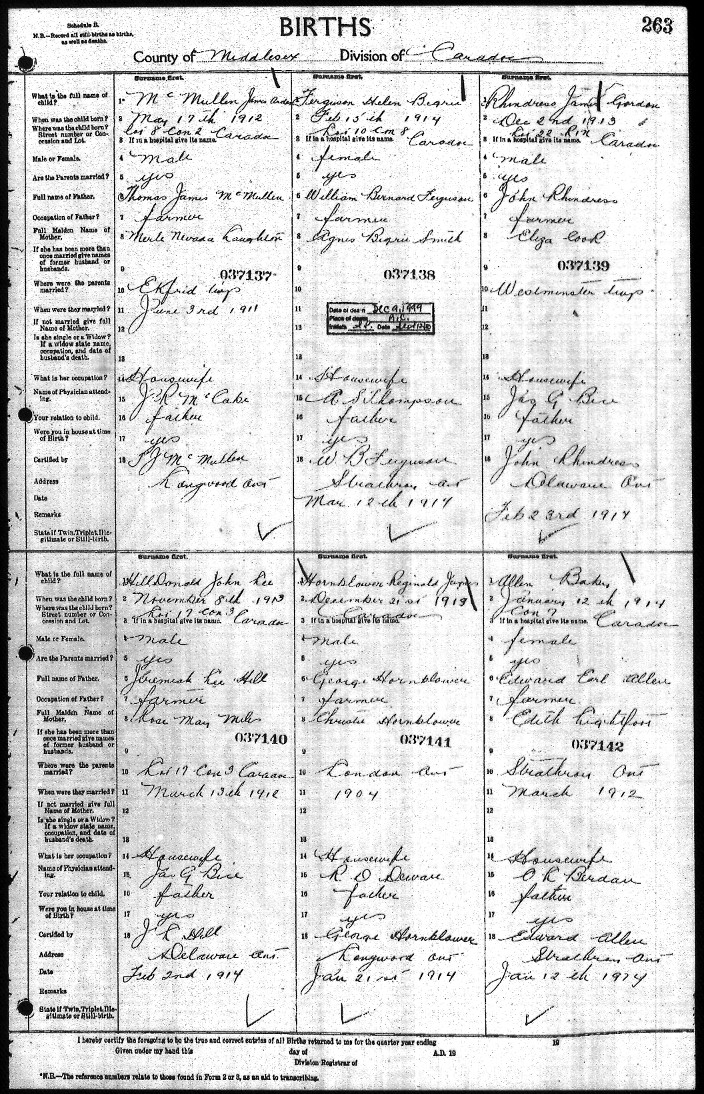 Schedule B.
N.B.—Record all still-births as births, as well as deaths.
BIRTHS
263
County of Middlesex Division of Caradoc
Surname first. Surname first. Surname first.
What is the full name of child?
1 McMullen James
Ferguson Helen Begrie
Rhindress James Gordon
When was the child born?
2 May 17th 1912
2 Feb 15th 1914
2 Dec 2nd 1913
Where was the child born? Street number or Concession and Lot.
Lot 8 Con 2 Caradoc
Lot 10 Con 8 Caradoc
Lot 22 Caradoc
3 If in a hospital give its name.
3 If in a hospital give its name.
3 If in a hospital give its name.
Male or Female.
4 male
4 female
4 male
Are the Parents married?
5 yes
5 yes
5 yes
Full name of Father.
6 Thomas James McMullen
6 William Bernard Ferguson
6 John Rhindress
Occupation of Father?
7 farmer
7 farmer
7 farmer
Full Maiden Name of Mother.
8 Merle Nevada Laughton
8 Agnes Begrie Smith
8 Eliza Cook
If she has been more than once married give names of former husband or husbands.
9
9
9
037137
037138
037139
Where were the parents married?
10 Ekfrid twp
10
10 Westminster twp
When were they married?
11 June 3rd 1911
11
11
If not married give full Name of Mother.
12
12
12
Date of death DEC 9, 1999
Place of death
Initials Date
Is she single or a Widow? If a widow state name, occupation, and date of husband's death.
13
13
13
What is her occupation?
14 Housewife
14 Housewife
14 Housewife
Name of Physician attending.
15 J R McCabe
15 A S Thompson
15 Jas G Bice
Your relation to child.
16 father
16 father
16 father
Were you in house at time of Birth?
17 yes
17 yes
17 yes
Certified by
18 T J McMullen
18 W B Ferguson
18 John Rhindress
Address
Longwood Ont
Strathroy Ont
Delaware Ont
Date
Mar 12th 1914
Feb 23rd 1914
Remarks
State if Twin, Triplet, Illegitimate or Still-birth.
Surname first. Surname first. Surname first.
What is the full name of child?
Hill Donald John Lee
Hornblower Reginald James
Allen Baker
When was the child born?
2 November 8th 1913
2 December 21st 1913
2 January 12th 1914
Where was the child born? Street number or Concession and Lot.
Lot 17 Con 3 Caradoc
Caradoc
Con 7 Caradoc
3 If in a hospital give its name.
3 If in a hospital give its name.
3 If in a hospital give its name.
Male or Female.
4 male
4 male
4 female
Are the Parents married?
5 yes
5 yes
5 yes
Full name of Father.
6 Jeremiah Lee Hill
6 George Hornblower
6 Edward Earl Allen
Occupation of Father?
7 farmer
7 farmer
7 farmer
Full Maiden Name of Mother.
8 Rose May Miles
8 Christie Hornblower
8 Edith Lightfoot
If she has been more than once married give names of former husband or husbands.
9
9
9
037140
037141
037142
Where were the parents married?
10 Lot 17 Con 3 Caradoc
10 London Ont
10 Strathroy Ont
When were they married?
11 March 13th 1912
11 1904
11 March 1912
If not married give full Name of Mother.
12
12
12
Is she single or a Widow? If a widow state name, occupation, and date of husband's death.
13
13
13
What is her occupation?
14 Housewife
14 Housewife
14 Housewife
Name of Physician attending.
15 Jas G Bice
15 R D Dewar
15 Berdan
Your relation to child.
16 father
16 father
16 father
Were you in house at time of Birth?
17 yes
17 yes
17 yes
Certified by
18 J L Hill
18 George Hornblower
18 Edward Allen
Address
Delaware Ont
Longwood Ont
Strathroy Ont
Date
Feb 2nd 1914
Jan 21st 1914
Jan 12th 1914
Remarks
State if Twin, Triplet, Illegitimate or Still-birth.
I hereby certify the foregoing to be the true and correct entries of all Births returned to me for the quarter year ending 19
Given under my hand this day of A.D. 19
Division Registrar of
*N.B.—The reference numbers relate to those found in Form 2 or 3, as an aid to transcribing.